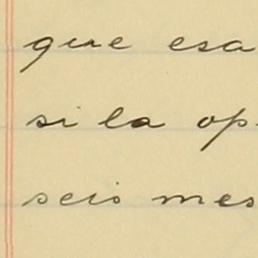 que esa
si la op
seis mes